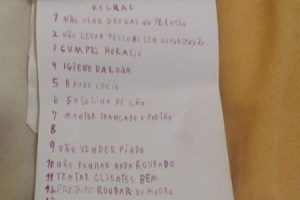 REGRAS
1 NÃO USAR DROGAS NO PLANTÃO
2 NÃO LEVAR PESSOAS SEM AUTORIZAÇÃO
3 CUMPRI HORARIO
4 IGIENE DA LOJA
5 BAUDE CHEIO
6 GASOLINA DE CÃO
7 MANTER TRANCADO O PORTÃO
8
9 NÃO VENDER FIADO
10 NÃO PANHAR NADA ROUBADO
11 TRATAR CLIENTES BEM
12 PROIBIDO ROUBAR NO MORRO